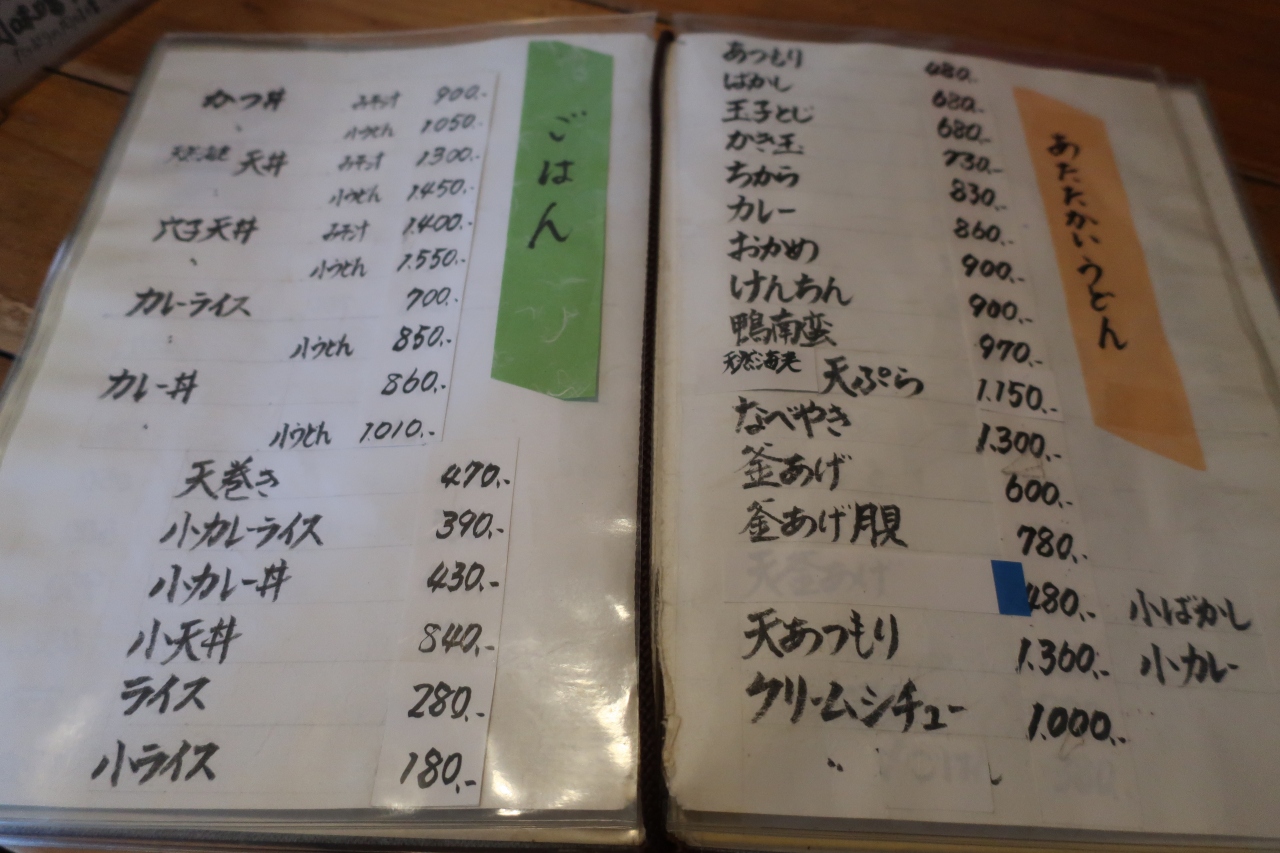 ごはん
かつ丼 みそ汁 900.-
〃 小うどん 1.050.-
天然海老 天丼 みそ汁 1.300.-
小うどん 1.450.-
穴子天丼 みそ汁 1.400.-
〃 小うどん 1.550.-
カレーライス 700.-
小うどん 850.-
カレー丼 860.-
小うどん 1.010.-
天巻き 470.-
小カレーライス 390.-
小カレー丼 430.-
小天丼 840.-
ライス 280.-
小ライス 180.-
あたたかいうどん
あつもり 480.-
ばかし 680.-
玉子とじ 680.-
かき玉 730.-
ちから 830.-
カレー 860.-
おかめ 900.-
けんちん 900.-
鴨南蛮 970.-
天然海老 天ぷら 1.150.-
なべやき 1.300.-
釜あげ 600.-
釜あげ月見 780.-
天釜あげ 480.- 小ばかし
天あつもり 1.360.- 小カレー
クリームシチュー 1.000.-
〃